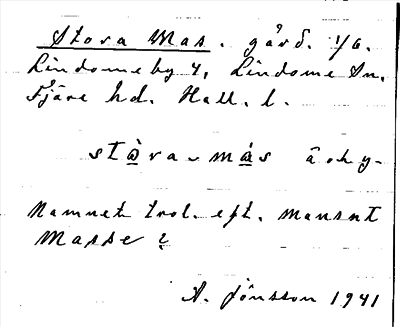 Stora Mas. gård. 1/6.
Lindomeby 4, Lindome Sn.
Fjäre hd. Hall. l.
stòra-màs
Namnet trol. eft. mansnt
Masse?
A. Jönsson 1941